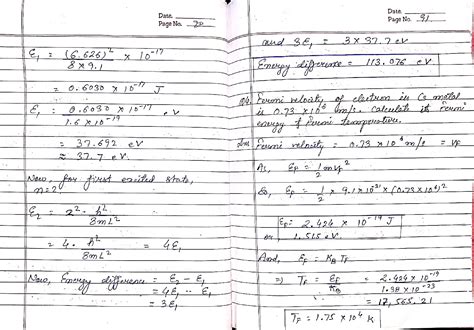 Date
Page No. 20
E₁ = (6.626)² × 10⁻¹⁷
8 × 9.1
= 0.6030 × 10⁻¹⁷ J
E₁ = 0.6030 × 10⁻¹⁷ eV
1.6 × 10⁻¹⁹
= 37.692 eV
≈ 37.7 eV.
Now, for first excited state,
n=2
E₂ = 2² · h²
8mL²
= 4 · h² = 4E₁
8mL²
Now, Energy difference = E₂ - E₁
= 4E₁ - E₁
= 3E₁
Date
Page No. 21
and 3E₁ = 3 × 37.7 eV
Energy difference = 113.076 eV
Fermi velocity of electron in Cs metal
is 0.73 × 10⁶ m/s. Calculate its Fermi
energy & Fermi temperature.
Fermi velocity = 0.73 × 10⁶ m/s = VF
As, EF = 1/2 mv²
So, EF = 1/2 × 9.1 × 10⁻³¹ × (0.73 × 10⁶)²
EF = 2.424 × 10⁻¹⁹ J
or 1.515 eV
And, EF = KB TF
⇒ TF = EF/KB = 2.424 × 10⁻¹⁹ / 1.38 × 10⁻²³
= 17,565.21
TF = 1.75 × 10⁴ K